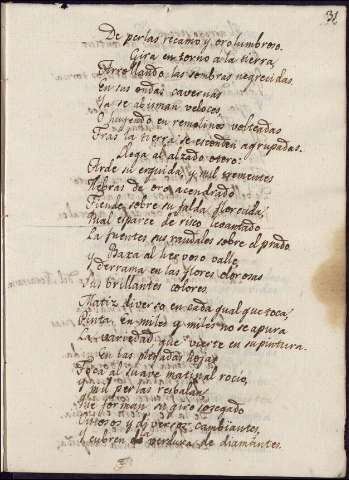 31
De perlas recamo y oro lumbroso.
Gira en torno a la tierra,
Arrollando las sombras negrecidas.
en sus ondas cavernas
Ya se abisman veloces,
O huyendo en remolinos volteadas
Tras la tierra se esconden agrupadas.
Llega al alzado otero:
Arde su erguida, y mil trementes
Hebras de oro acendrado
Tiende sobre su falda florecida,
Qual esparce de risco levantado
La fuente sus raudales sobre el prado
Baxa al hespero valle,
Y derrama en las flores olorosas
Sus brillantes colores.
Matiz diverso en cada qual que toca,
Pinta, en miles y miles no se apura
La variedad que vierte en su pintura.
En las plegadas hojas
Toca al suave matinal rocio,
Y mil perlas resbala
Que forman su giro sosegado
Visosos y diversos cambiantes,
Y cubren la verdura de diamantes.